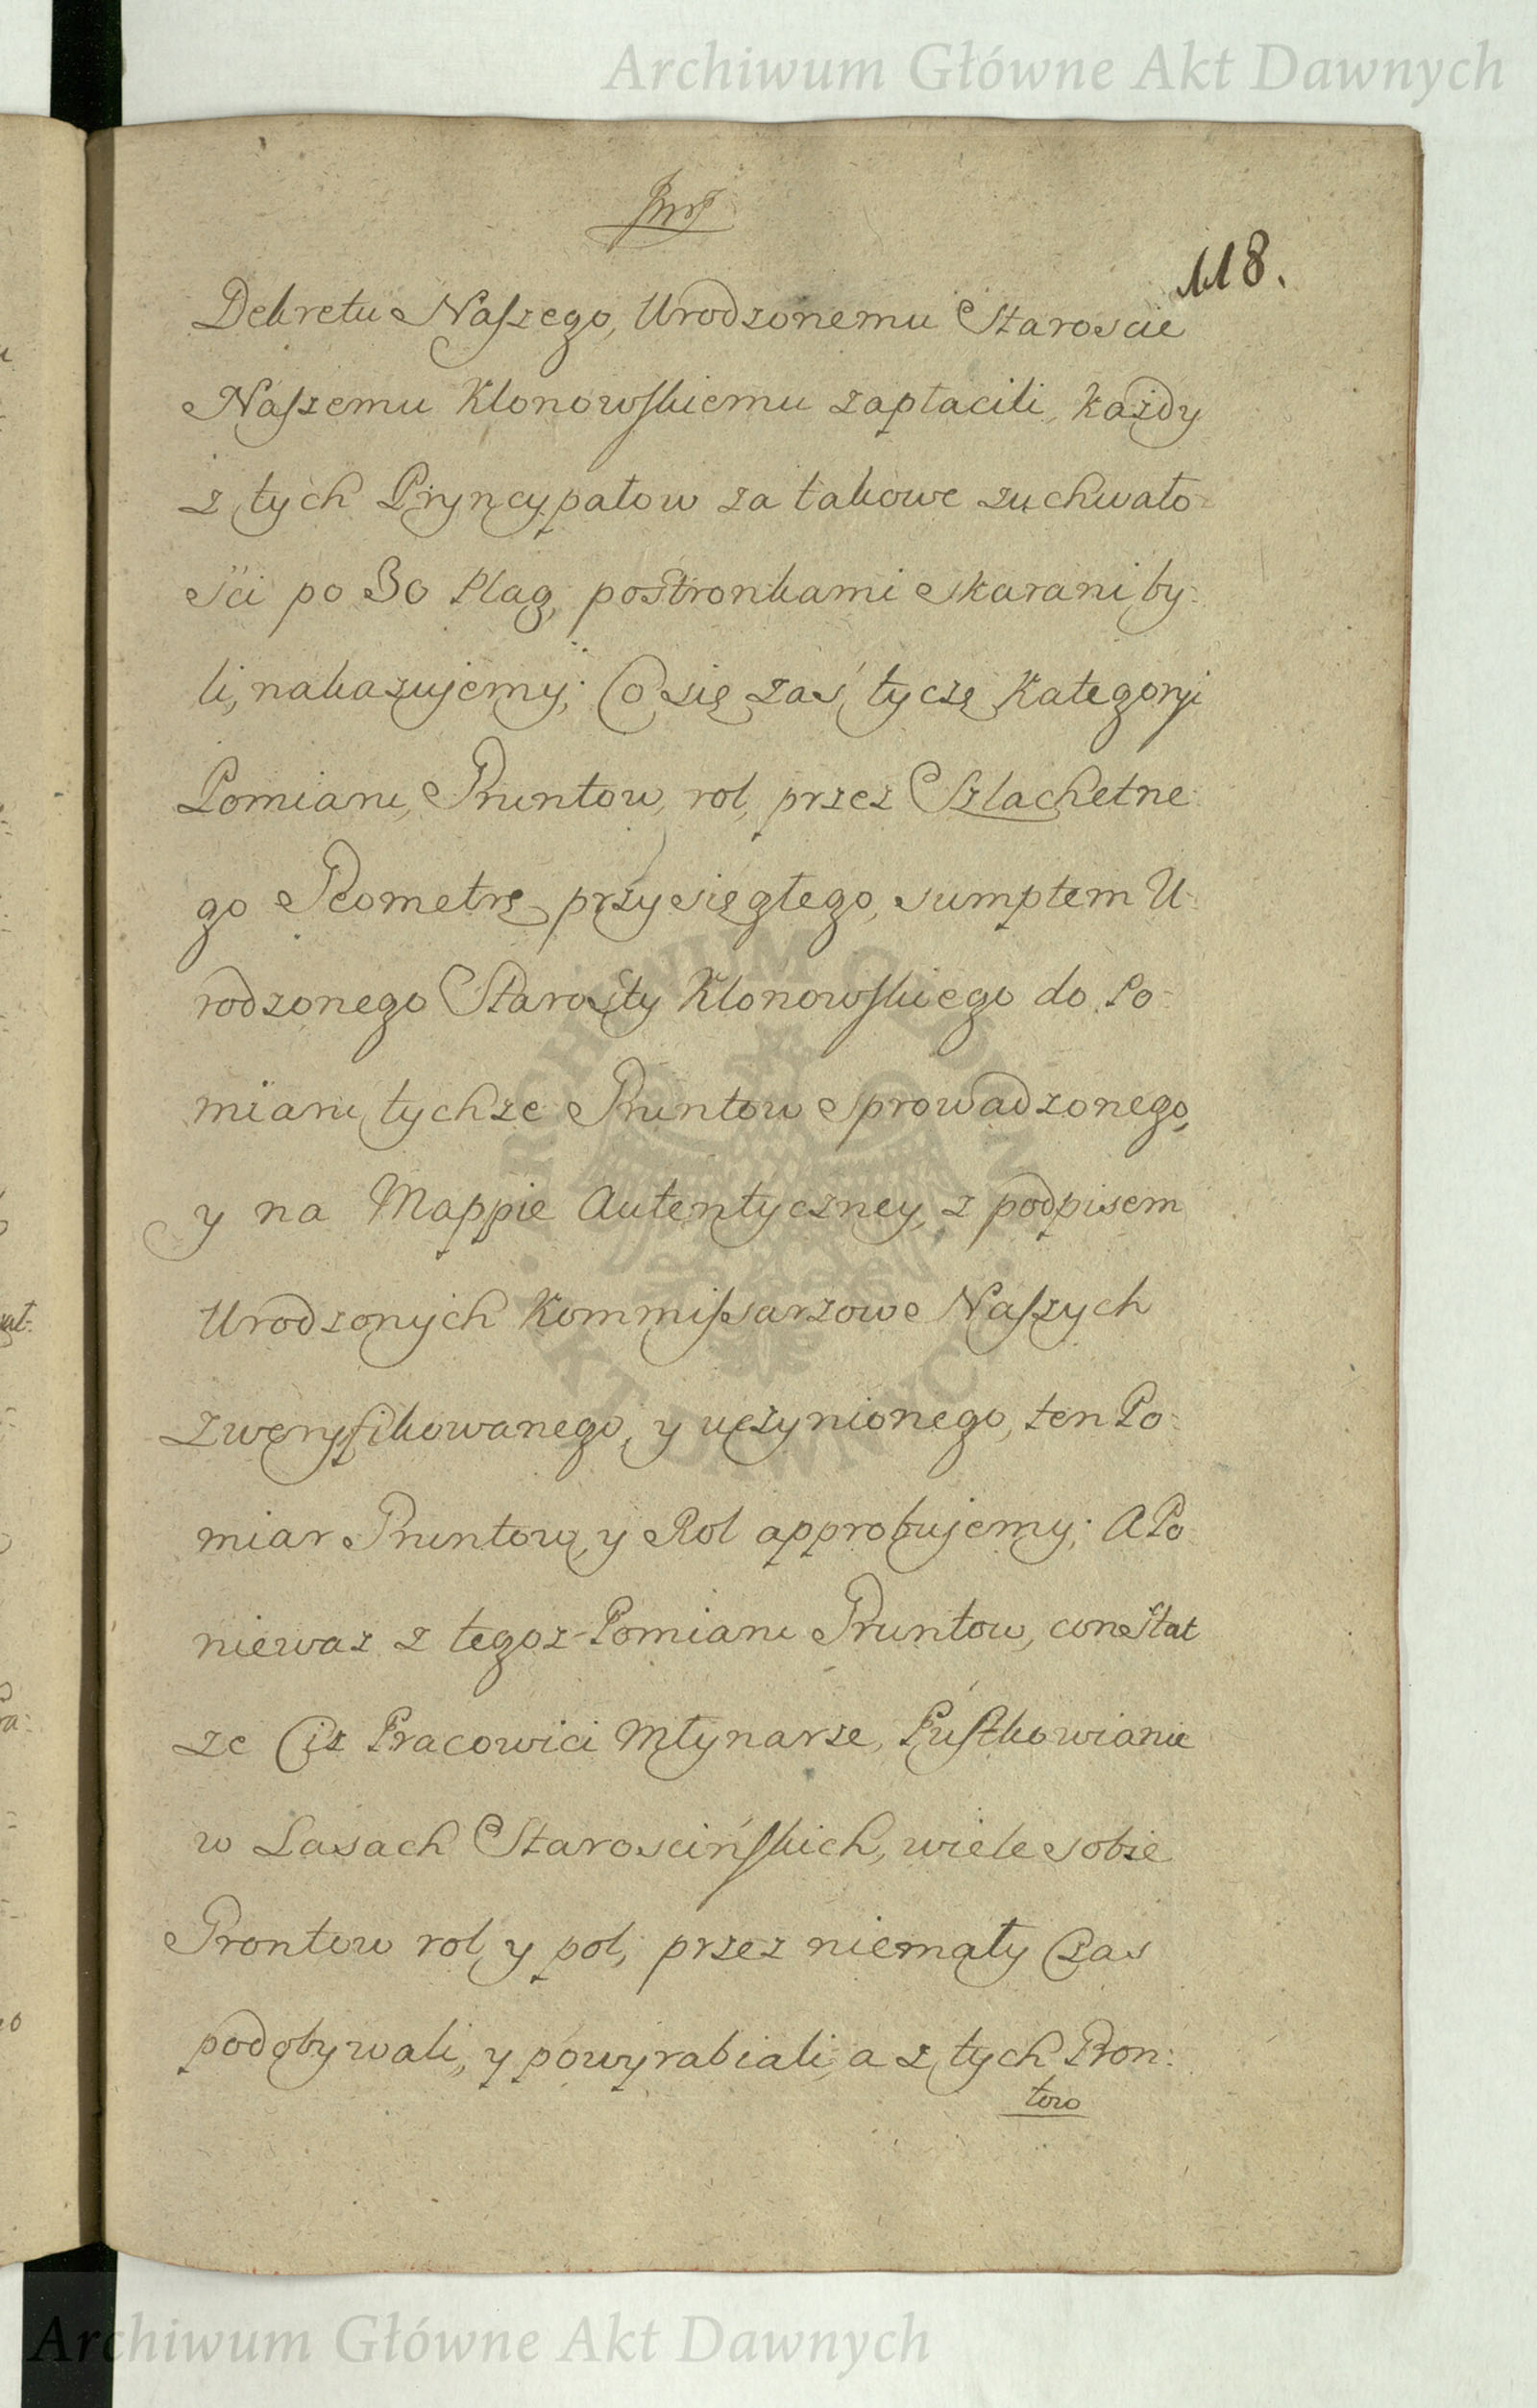 Archiwum Główne Akt Dawnych
118.
Dekretu Naszego, Urodzonemu Staroscie
Naszemu Klonowskiemu zapłacili, każdy
z tych Pryncypałow za takowe zuchwało-
ści po 30 Plag, postronkami skarani by:
li, nakazujemy; Co się zaś tycze Kategoryi
Pomiaru, Gruntow, rol, przez Szlachetne:
go Geometrę przysięgłego, sumptem U:
rodzonego Starosty Klonowskiego do Po:
miaru tychze Gruntow sprowadzonego,
y na Mappie Autentyczney, z podpisem
Urodzonych Kommissarzow Naszych
zweryfikowanego, y uczynionego, ten Po:
miar Gruntow, y Rol approbujemy; A Po:
niewaz z tegoz Pomiaru Gruntow, constat
ze Ciz Pracowici Młynarze, Pustkowianie
w Lasach Starościńskich, wiele sobie
Grontow rol, y pol, przez niemały Czas
podobywali, y powyrabiali, a z tych Gron:
tow
ARCHIWUM GŁÓWNE AKT DAWNYCH
Archiwum Główne Akt Dawnych